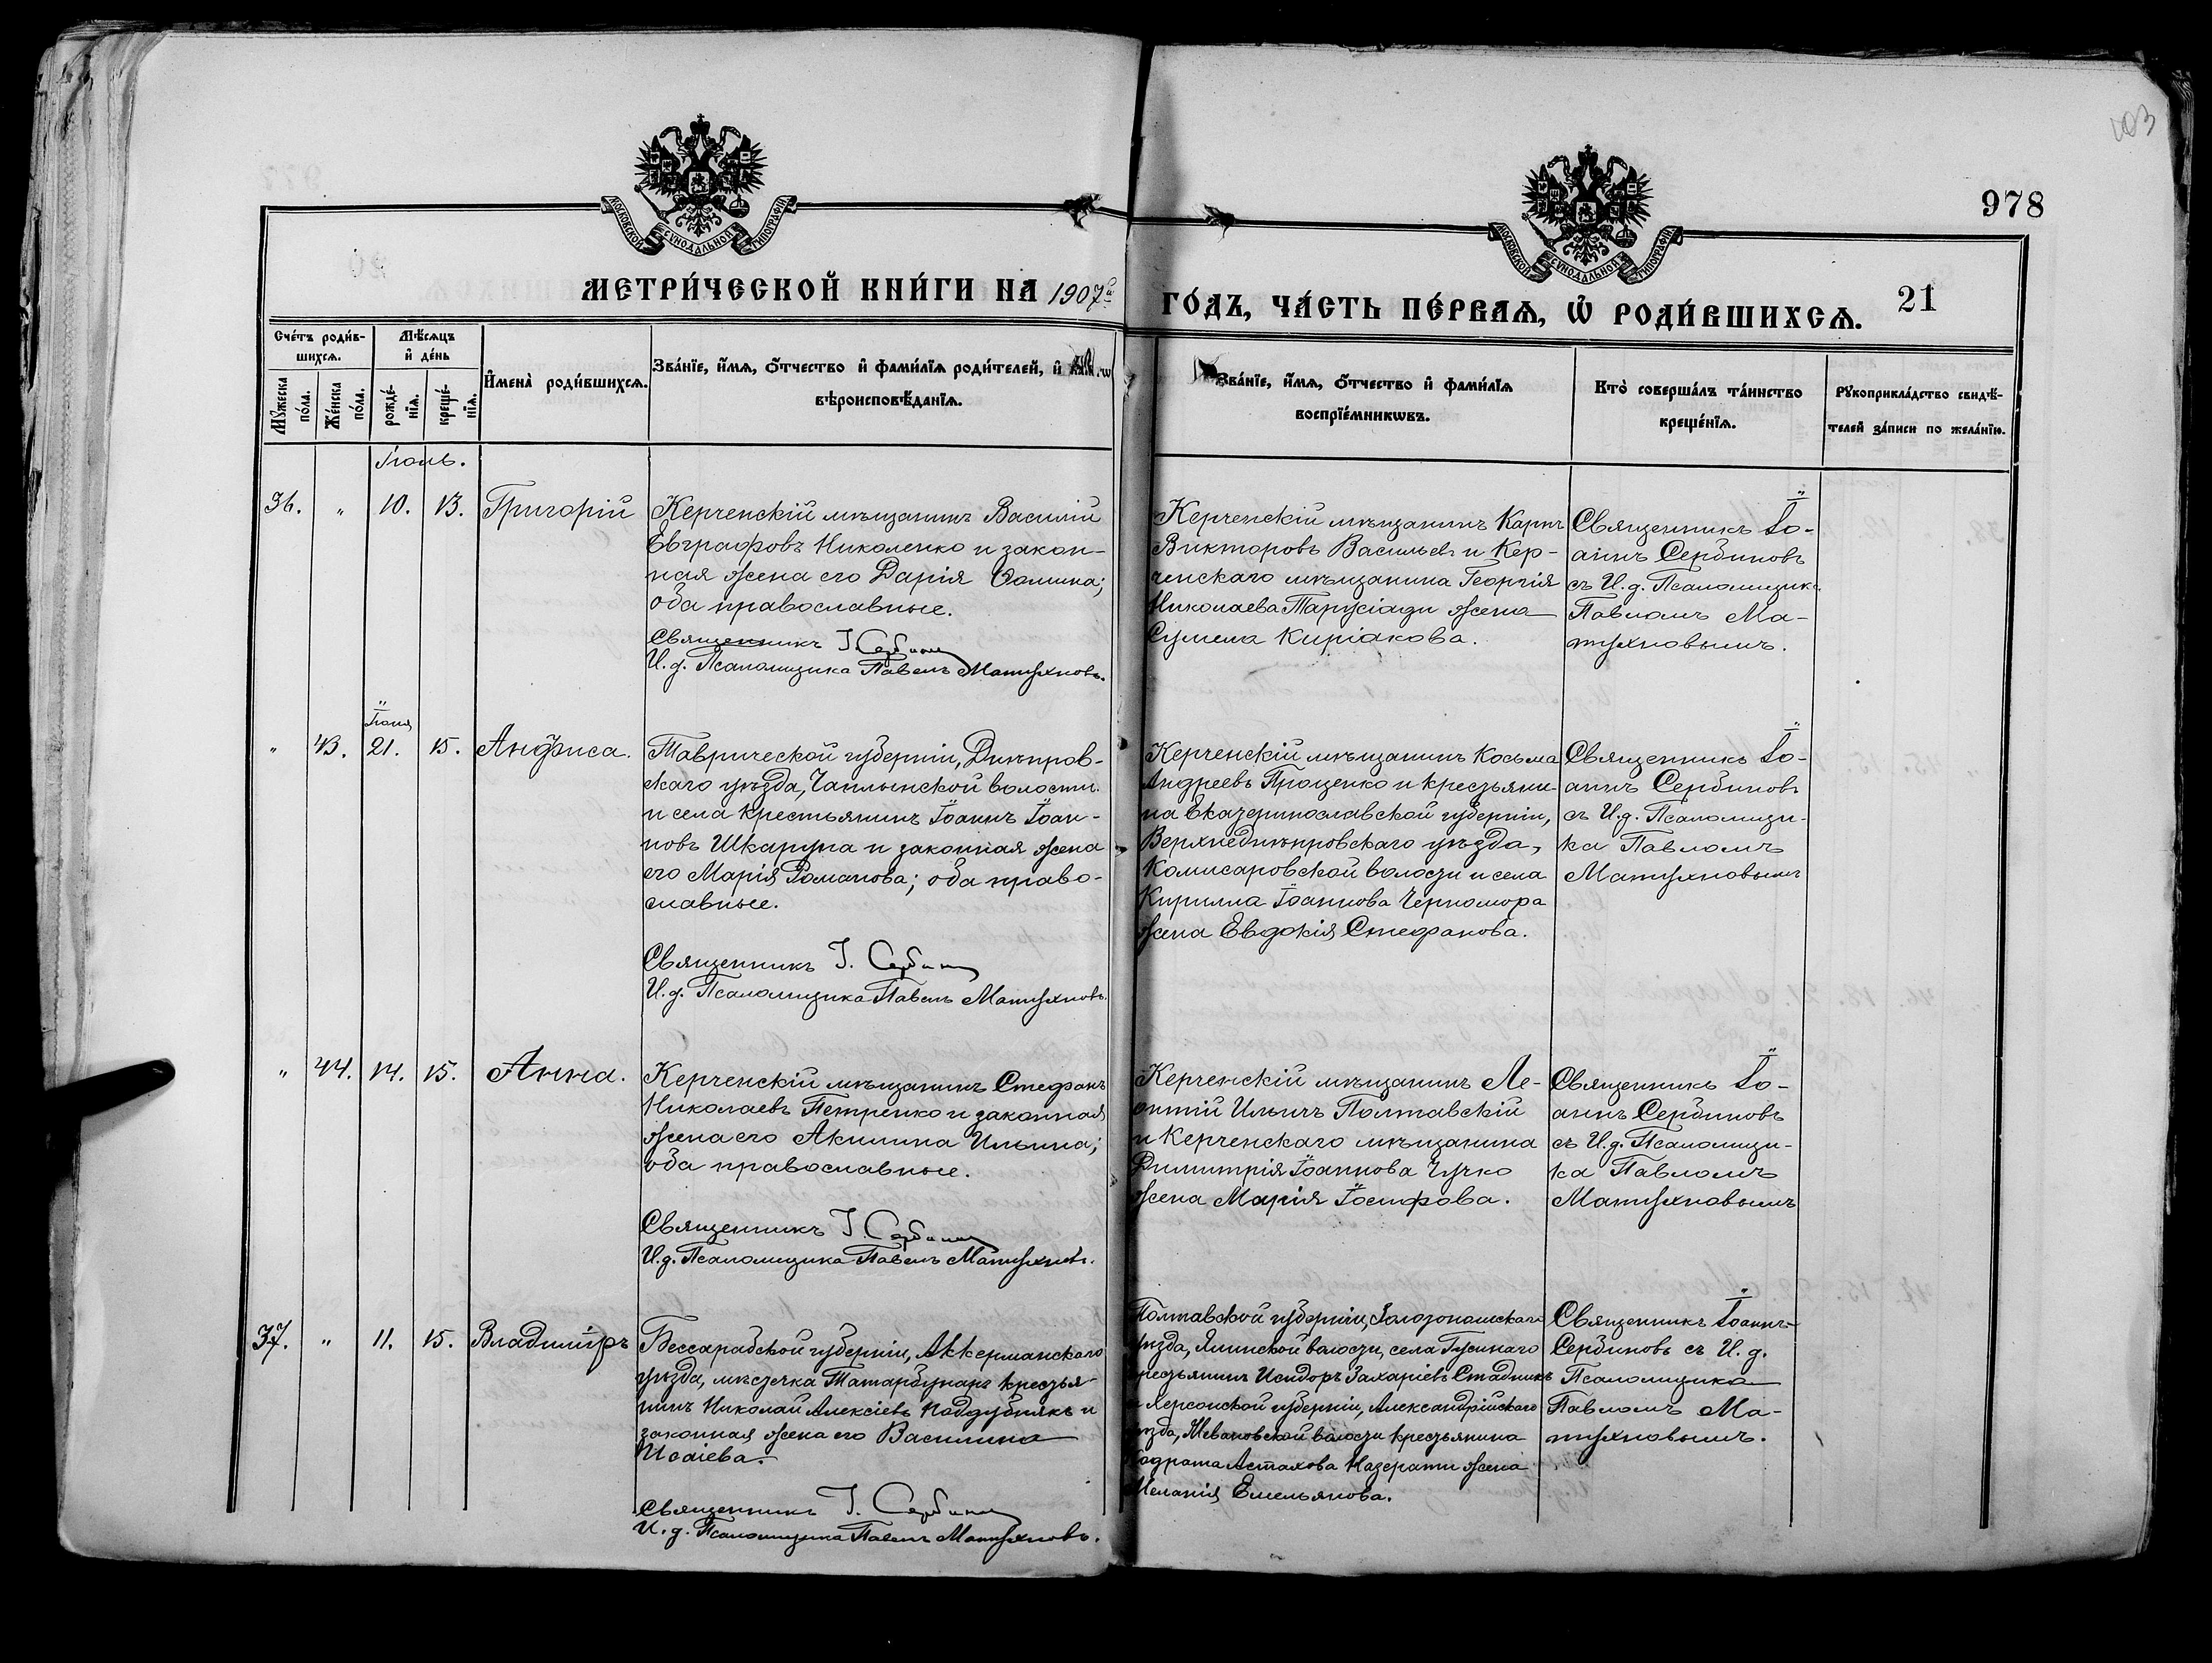 103
978
МОСКОВСКОЙ СѴНОДАЛЬНОЙ ТИПОГРАФІИ
МОСКОВСКОЙ СѴНОДАЛЬНОЙ ТИПОГРАФІИ
МЕТРИ́ЧЕСКОЙ КНИ́ГИ НА 1907й
ГО́ДЪ, ЧА́СТЬ ПЕ́РВАѦ, Ѡ҆ РОДИ́ВШИХСѦ.
21
Сче́тъ роди́в-
шихсѧ.
Мꙋ́жеска
по́ла.
Же́нска
по́ла.
Мѣ́сѧцъ
и҆ де́нь
рожде́-
нїѧ.
креще́-
нїѧ.
И҆мена̀ роди́вшихсѧ.
Зва́нїе, и҆́мѧ, ѻ҆́тчество и҆ фами́лїѧ роди́телей, и҆
вѣроисповѣ́данїѧ.
Зва́нїе, и҆́мѧ, ѻ҆́тчество и҆ фами́лїѧ
воспрїе́мникѡвъ.
Кто̀ соверша́лъ та́инство
креще́нїѧ.
Рꙋкоприкла́дство свидѣ́-
телей за́писи по жела́нїю.
Іюль.
36. " 10. 13. Григорій
Керченскій мѣщанинъ Василій
Евграфовъ Николенко и закон-
ная жена его Дарія Ѳомина;
оба православные.
Священникъ І. Сербинов
И. д. Псаломщика Павелъ Матухновъ.
Керченскій мѣщанинъ Карпъ
Викторовъ Васильев и Кер-
ченскаго мѣщанина Георгія
Николаева жена
Сумела Киріакова.
Священникъ Іо-
аннъ Сербиновъ
съ И. д. Псаломщика
Павломъ Ма-
тухновымъ.
Іюня
" 43. 21. 15. Анфиса.
Таврической губерніи, Днѣпров-
скаго уѣзда, Чаплынской волости
и села крестьянинъ Іоаннъ Іоан-
новъ Шкарупа и законная жена
его Марія Романова; оба право-
славные.
Священникъ І. Сербинов
И. д. Псаломщика Павелъ Матухновъ.
Керченскій мѣщанинъ Косьма
Андреевъ Проценко и крестьяни-
на Екатеринославской губерніи,
Верхнеднѣпровскаго уѣзда,
Комисаровской волости и села
Кирилла Іоаннова Черномора
жена Евдокія Стефанова.
Священникъ Іо-
аннъ Сербиновъ
съ И. д. Псаломщи-
ка Павломъ
Матухновымъ
" 44. 14. 15. Анна.
Керченскій мѣщанинъ Стефанъ
Николаевъ Петренко и законная
жена его Акилина Ильина;
оба православные.
Священникъ І. Сербинов
И. д. Псаломщика Павелъ Матухновъ.
Керченскій мѣщанинъ Ле-
онтій Ильичъ Полтавскій
и Керченскаго мѣщанина
Димитрія Іоаннова Чучко
жена Марія Іосифова.
Священникъ Іо-
аннъ Сербиновъ
съ И. д. Псаломщи-
ка Павломъ
Матухновымъ
37. " 11. 15. Владиміръ
Бессарабской губерніи, Аккерманскаго
уѣзда, мѣстечка Татарбунаръ крестья-
нинъ Николай Алексіевъ Поддубнякъ и
законная жена его Василина
Исаіева.
Священникъ І. Сербинов
И. д. Псаломщика Павелъ Матухновъ.
Полтавской губерніи, Золотоношскаго
уѣзда, волости, села Гусинаго
крестьянинъ Исидоръ Захаріевъ Стадникъ
и Херсонской губерніи, Александрійскаго
уѣзда, волости крестьянина
Кодрата Астахова жена
Меланія Емельянова.
Священникъ Іоаннъ
Сербиновъ съ И. д.
Псаломщика
Павломъ Ма-
тухновымъ.